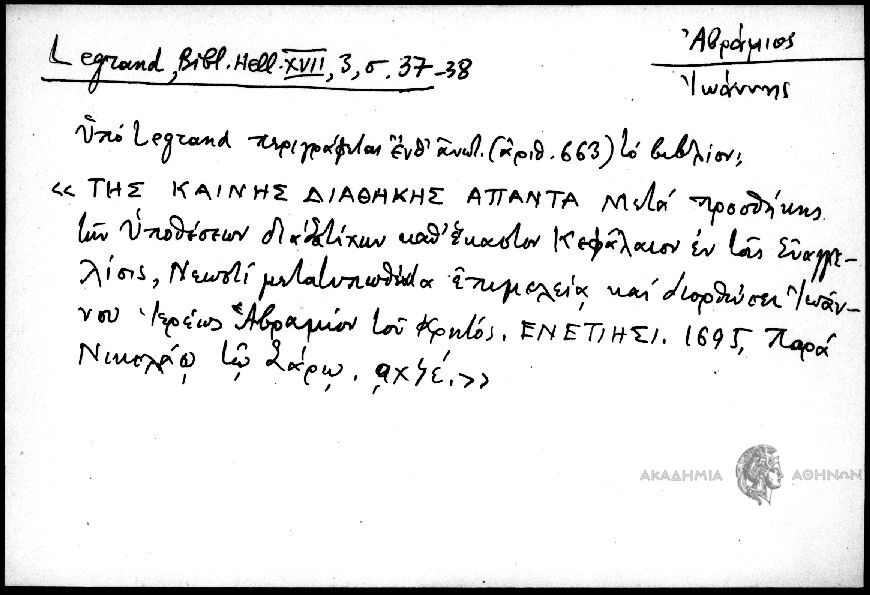 Ἀβράμιος
Ἰωάννης
Legrand, Bibl. Hell. XVII, 3, σ. 37-38
Ὑπὸ Legrand περιγράφεται ἔνθ' ἀνωτ. (ἀριθ. 663) τὸ βιβλίον:
«ΤΗΣ ΚΑΙΝΗΣ ΔΙΑΘΗΚΗΣ ΑΠΑΝΤΑ Μετά προσθήκης
τῶν Ὑποθέσεων διὰ στίχων καθ' ἕκαστον Κεφάλαιον ἐν τοῖς Εὐαγγε-
λίοις, Νεωστί μετατυπωθέντα ἐπιμελείᾳ καί διορθώσει Ἰωάν-
νου Ἱερέως Ἀβραμίου τοῦ Κρητός. ΕΝΕΤΙΗΣΙ. 1695, Παρά
Νικολάῳ τῷ Σάρῳ. αχϟέ.»
ΑΚΑΔΗΜΙΑ ΑΘΗΝΩΝ